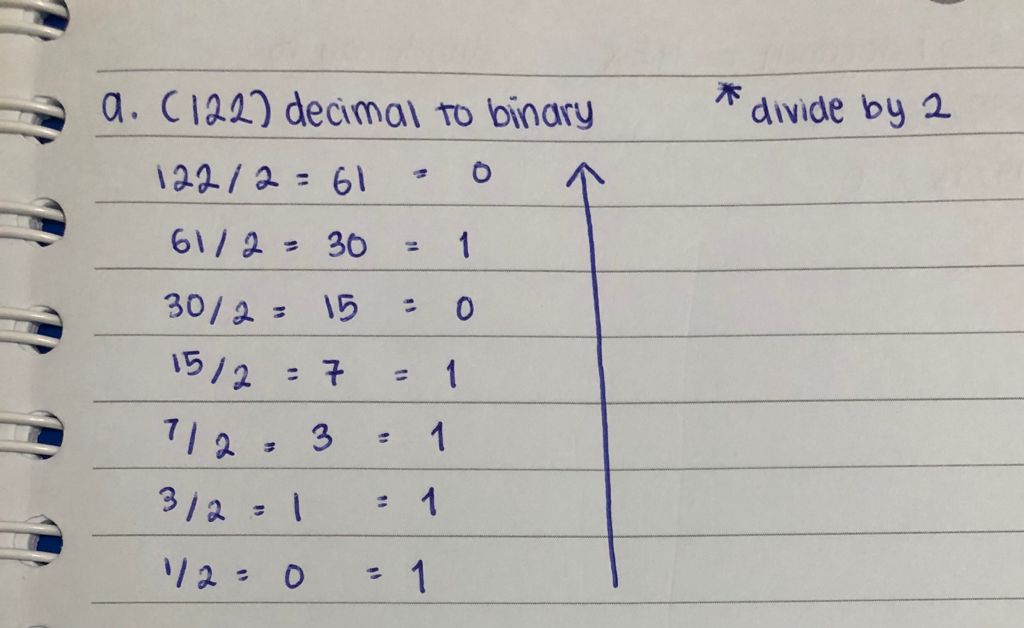 a. (122) decimal to binary * divide by 2
122 / 2 = 61 = 0
61 / 2 = 30 = 1
30 / 2 = 15 = 0
15 / 2 = 7 = 1
7 / 2 = 3 = 1
3 / 2 = 1 = 1
1/2 = 0 = 1